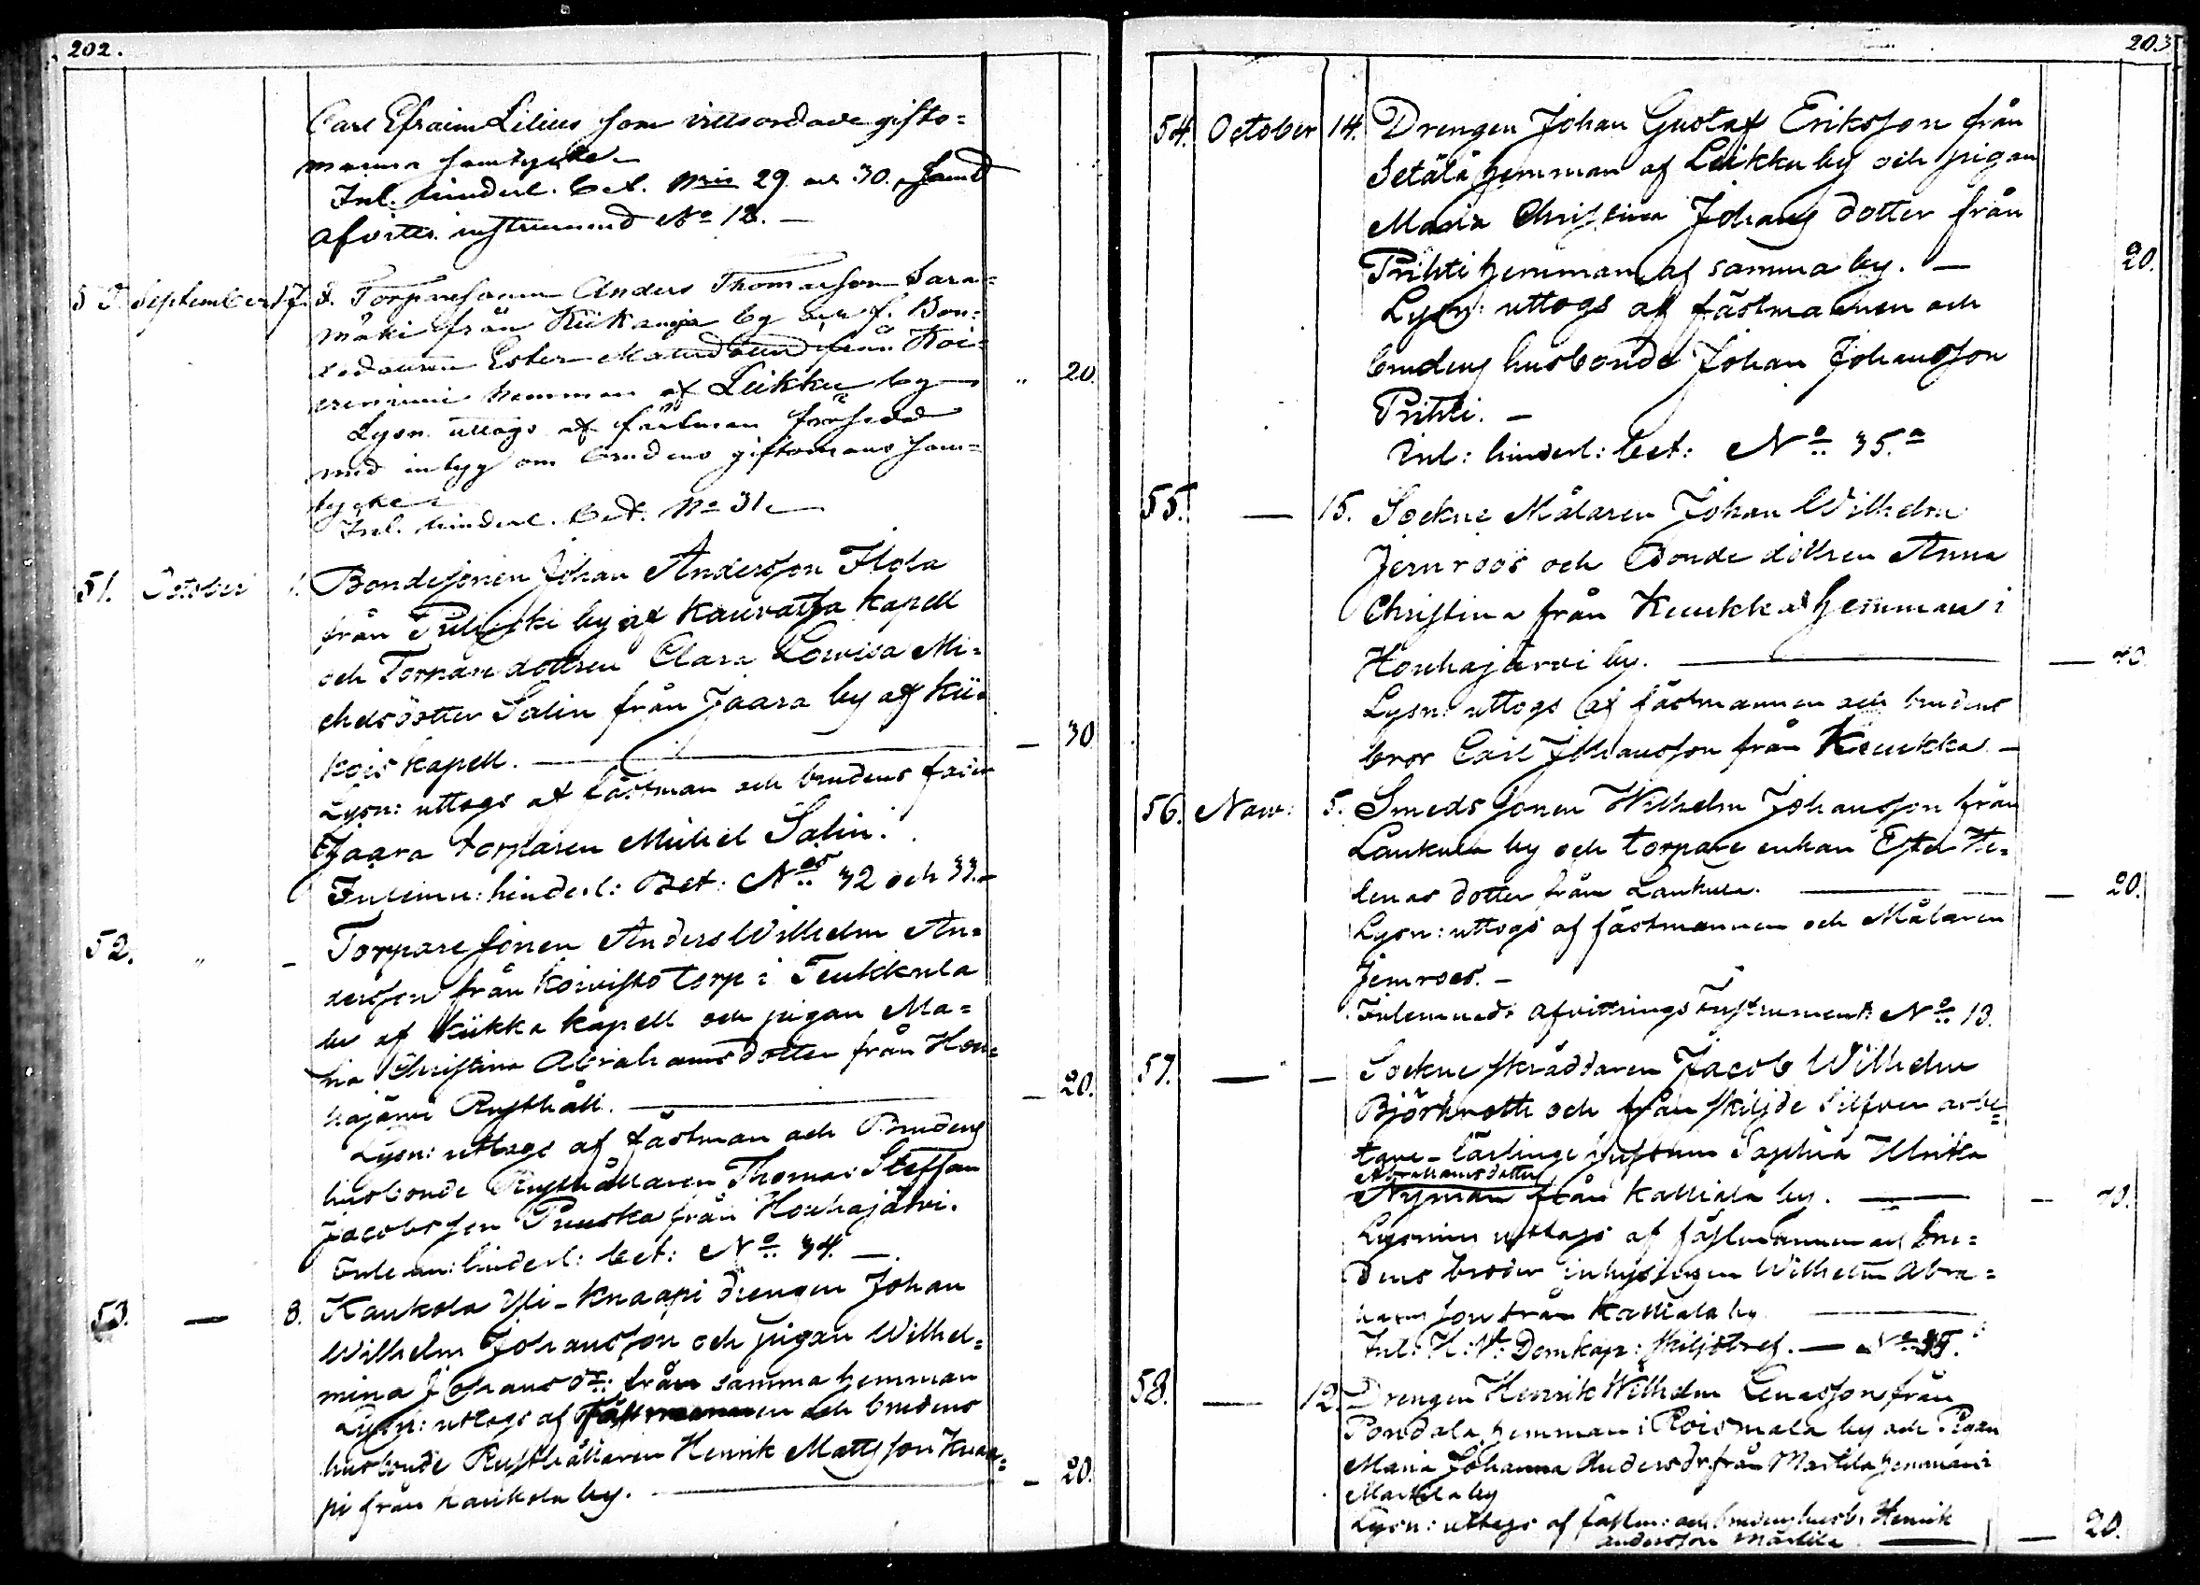 202.
Carl Efraim Lilius som vittsordade gifto=
manna samtycke
Inl. hinderl. bet. Nris 29. och 30. samt
Afvittr. instrument No 12. —
50. September 17. d. Torparesonen Anders Thomasson Sara=
mäki från Kiikanoja by och f. Bon=
dedottren Ester från Koi=
veniemi hemman af Leikku by " 20.
Lysn. uttogs af fästman försedd
med intyg om brudens giftomans sam=
tycke
Inl. hinderl. Bet. No 31.
51. October 1. Bondesonen Johan Andersson Flola
från by af Kauvatsa Kapell
och Torpare dottren Clara Lovisa Mi=
chelsdotter Salin från Jaara by af Kii=
kois Kapell. — — 30
Lysn: uttogs af fästman och brudens fader
Jaara torparen Michel Salin.
Inlemn: hinderl: Bet: Nos 32 och 33. —
52. " - Torpare sonen Anders Wilhelm An=
dersson från Koivisto torp i Teukkula
by af Kiikka Kapell och pigan Ma=
ria Christina Abrahamsdotter från Hou=
hajärvi Rusthåll. — — 20.
Lysn: uttogs af fästman och Brudens
husbonde Rusthållaren Thomas Steffan
Jacobsson Pruuska från Houhajärvi.
Inlemn: hinderl: bet: No. 34. —
53. — 8. Kaukola Yli-Knaapi drengen Johan
Wilhelm Johansson och pigan Wilhel=
mina Johansdr: från samma hemman
Lysn: uttogs af fästmannen och brudens
husbonde Rusthållaren Henrik Mattsson Knaa=
pi från Kaukola by. — — 20.
203
54. October 14. Drengen Johan Gustaf Eriksson från
Setälä hemman af Leikku by och pigan
Maria Christina Johans dotter från
Prihti hemman af samma by. — 20.
Lysn: uttogs af fästmannen och
brudens husbonde Johan Johansson
Prihti. —
Inl: hinderl: bet: No. 35.a
55. — 15. Sockne Målaren Johan Wilhelm
Jernroos och Bonde dottren Anna
Christina från Kuukka hemman i
Houhajärvi by. — — 40.
Lysn: uttogs af fästmannen och brudens
bror Carl Johansson från Kuukka —
56. Nov: 5. Smeds sonen Wilhelm Johansson från
Laukula by och torpare enkan Ester He=
lenas dotter från Laukula. — — 20.
Lysn: uttogs af fästmannen och Målaren
Jernroos. —
Inlemnads afvittrings Instrument No. 13.
57. — — Sockne skräddaren Jacob Wilhelm
Björkroth och från skiljde Silfver arbe=
tare-lärlings hustrun Sophia Ulrika
Abrahamsdotter
Nyman från Kalliala by. — — 40.
Lysnin uttogs af fästmannen och bru=
dens broder inhysingen Wilhelm Abra=
hamsson från Kalliala by —
Inl: H: V: Domkap: skiljobref. — No 35.
58. — 12. Drengen Henrik Wilhelm Lenasson från
Pondala hemman i Roismala by och Pigan
Maria Johanna Andersdr från Marttila hemman i
Marttila by
Lysn: uttogs af fästm: och brudens husb. Henrik
Andersson Marttila — — 20.